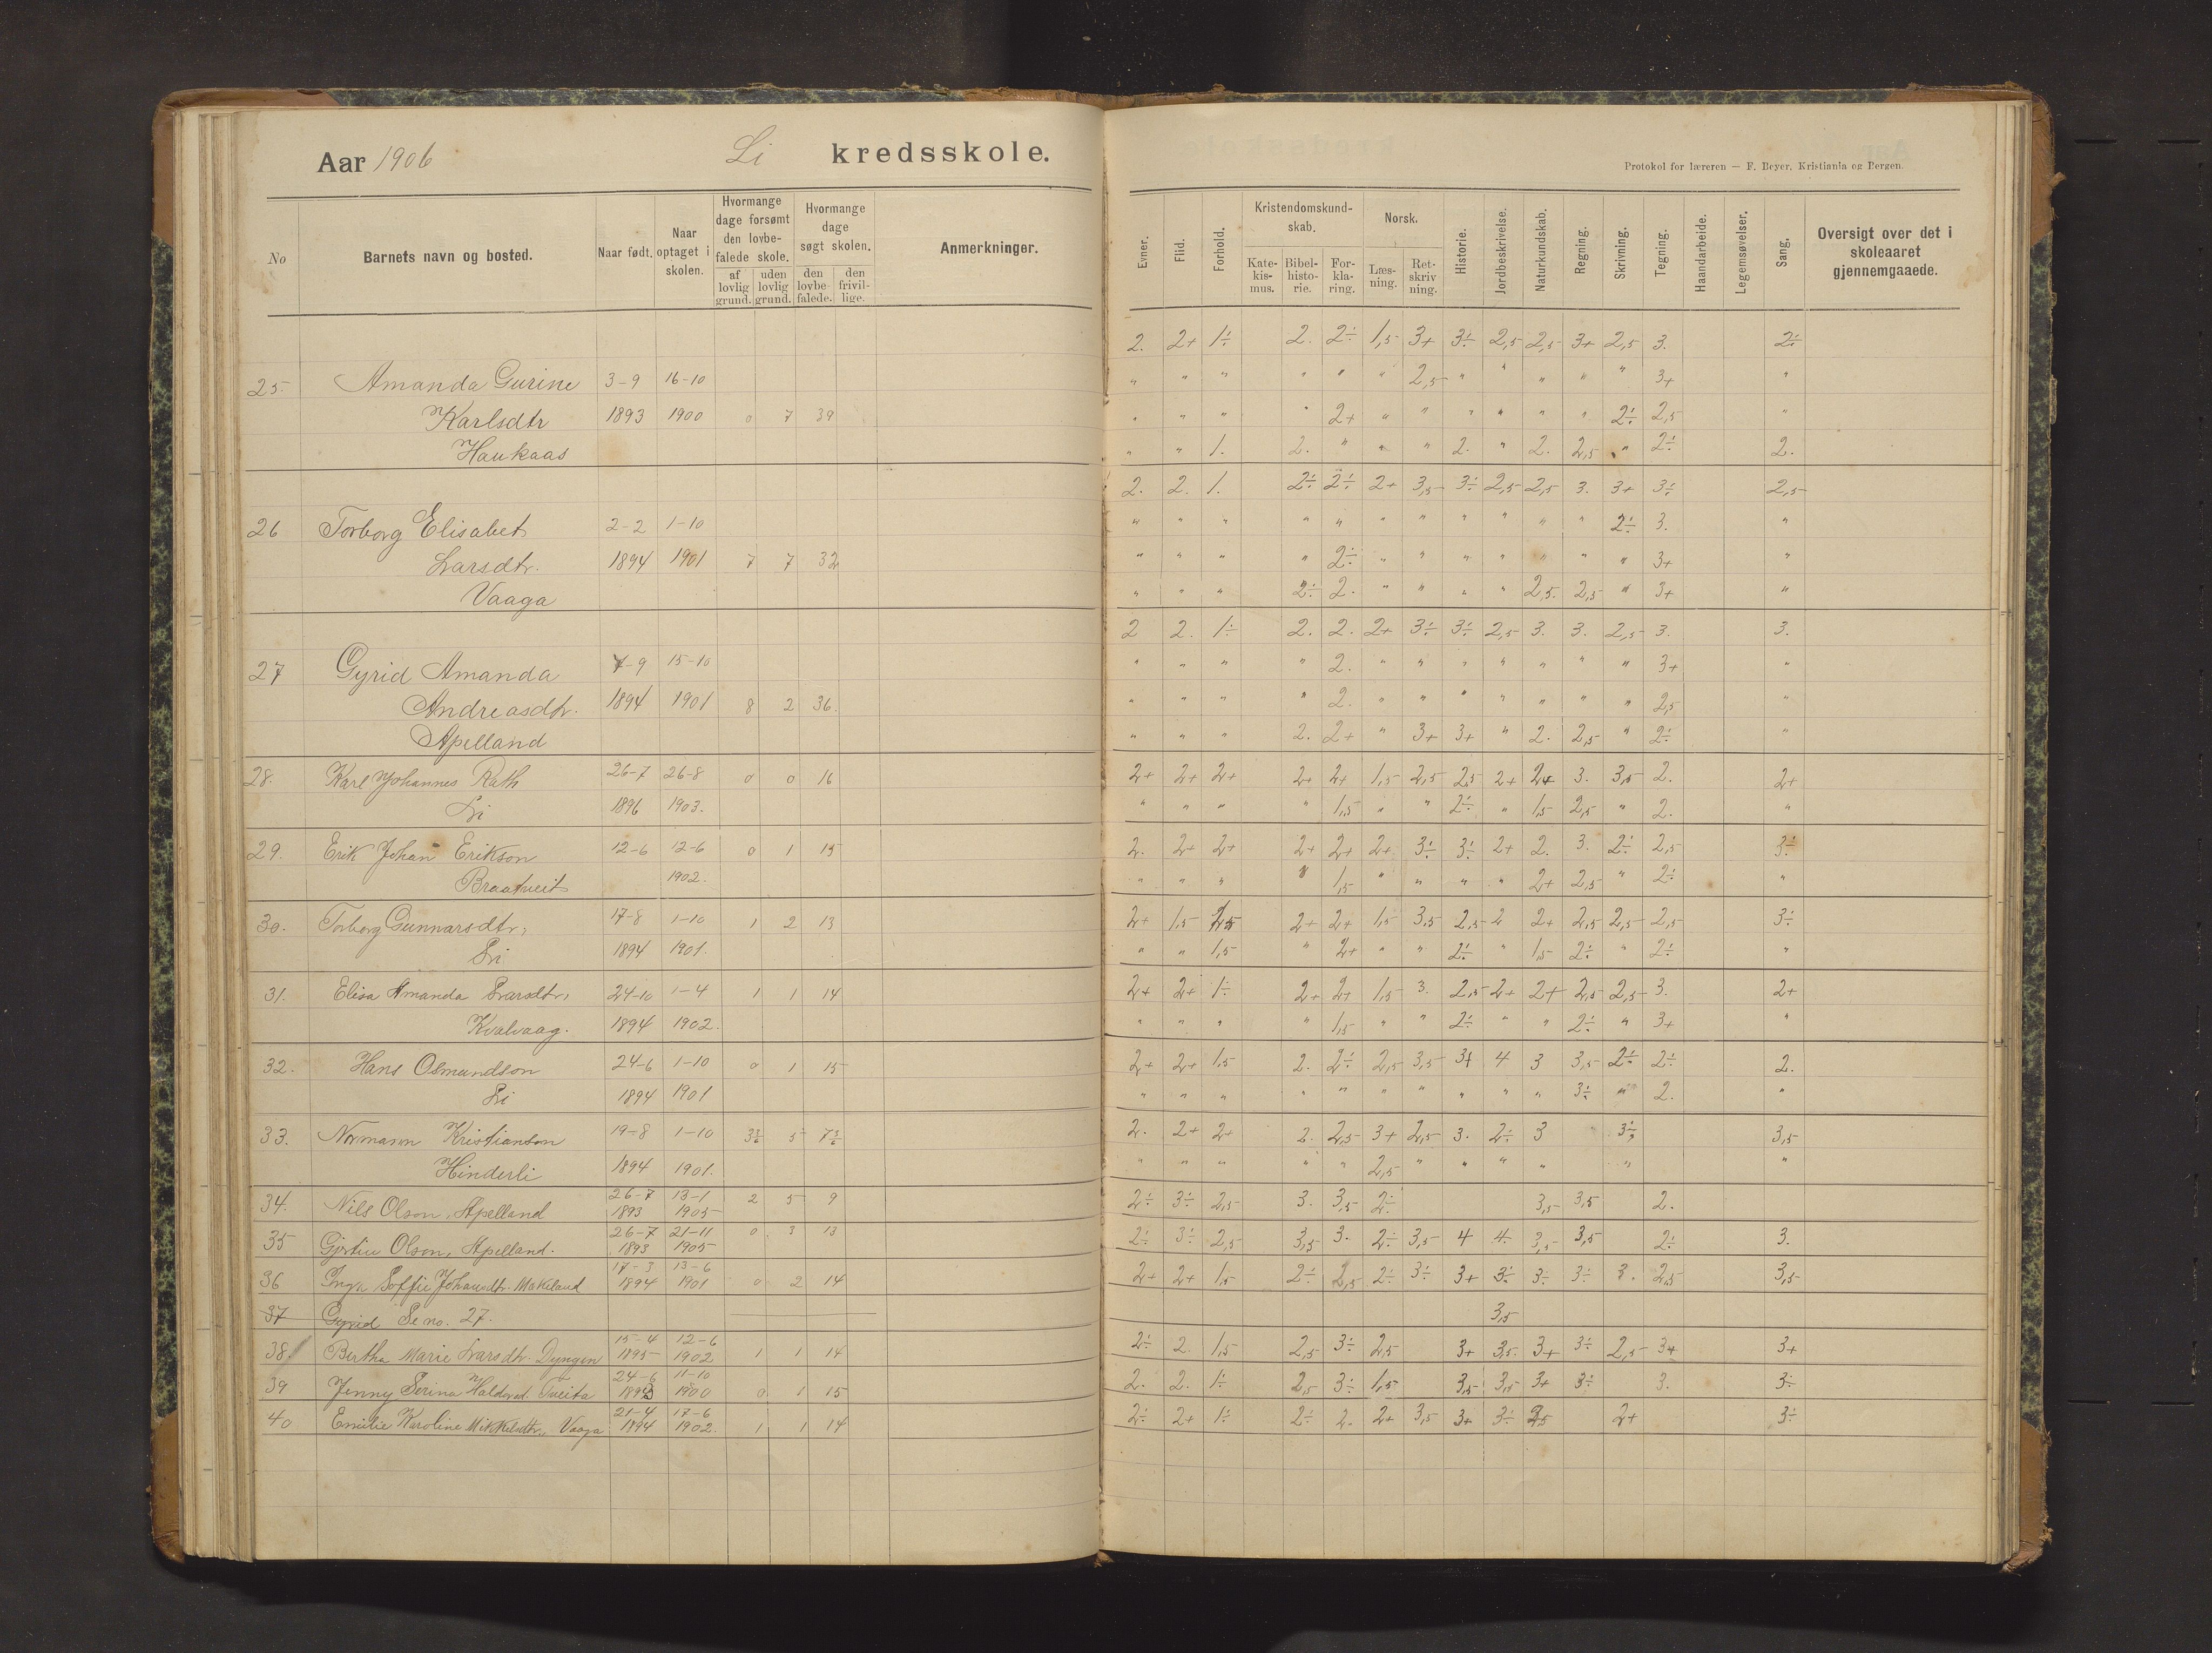 Aar 1906 Li kredsskole.
Protokol for læreren — F. Beyer, Kristiania og Bergen.
No Barnets navn og bosted. Naar født. Naar optaget i skolen. Hvormange dage forsømt den lovbefalede skole. af lovlig grund. uden lovlig grund. Hvormange dage søgt skolen. den lovbefalede. den frivillige. Anmerkninger.
Evner. Flid. Forhold. Kristendomskundskab. Katekismus. Bibelhistorie. Forklaring. Norsk. Læsning. Retskrivning. Historie. Jordbeskrivelse. Naturkundskab. Regning. Skrivning. Tegning. Haandarbeide. Legemsøvelser. Sang. Oversigt over det i skoleaaret gjennemgaaede.
2. 2+ 1÷ 2. 2÷ 1,5 3+ 3÷ 2,5 2,5 3+ 2,5 3. 2÷
25. Amanda Gurine 3-9 16-10 " " " " " " 2,5 " " " " " 3+ "
Karlsdtr 1893 1900 0 7 39 " " " " 2+ " " " " " " 2÷ 2,5 "
Haukaas " " 1. 2. " " " 2. " 2. 2,5 " 2÷ 2.
2. 2. 1. 2÷ 2÷ 2+ 3,5 3÷ 2,5 2,5 3. 3+ 3÷ 2,5
26 Torborg Elisabet 2-2 1-10 " " " " " " " " " " " 2÷ 3. "
Larsdtr. 1894 1901 7 7 32 " " " " 2÷ " " " " " " " 3+ "
Vaaga " " " 2÷ 2. " " " " 2,5. 2,5 " 3+ "
2 2. 1÷ 2. 2. 2+ 3÷ 3÷ 2,5 3. 3. 2,5 3. 3.
27 Gyrid Amanda 7-9 15-10 " " " " 2. " " " " " " " 3+ "
Andreasdtr. 1894 1901 8 2 36. " " " " 2. " " " " " " " 2,5 "
Apelland " " " 2. 2+ " 3+ 3+ " 2. 2,5 " 2÷ "
28. Karl Johannes Rath 26-7 26-8 0 0 16 2+ 2+ 2+ 2+ 2+ 1,5 2,5 2,5 2+ 2+ 3. 3,5 2. 2+
Li 1896 1903. " " " " 1,5 " " 2÷ " 1,5 2,5 " 2. "
29. Erik Johan Erikson 12-6 12-6 0 1 15 2. 2+ 2+ 2+ 2+ 2+ 3÷ 3÷ 2+ 2. 3. 2÷ 2,5 3÷
Braatveit 1902. " " " " 1,5 " " " " 2+ 2,5 " 2÷ "
30. Torborg Gunnarsdtr, 17-8 1-10 1 2 13 2+ 1,5 2+ 2+ 1,5 3,5 2,5 2 2+ 2,5 2,5 2,5 3÷
Li 1894 1901. " " 1,5 " 2+ " " 2÷ " 1,5 2÷ " 2÷ "
31. Elisa Amanda Larsdtr, 24-10 1-4 1 1 14 2+ 2+ 1÷ 2+ 2+ 1,5 3. 2,5 2+ 2+ 2,5 2,5 3. 2+
Kvalvaag. 1894 1902. " " " " 1,5 " " 2÷ " " 2÷ " 3+ "
32. Hans Osmundson 24-6 1-10 0 1 15 2+ 2+ 1,5 2. 2÷ 2,5 3,5 3+ 4 3 3,5 2÷ 2÷ 2.
Li 1894 1901 " " " " " " " " " " 3÷ " 2. "
33. Normann Kristianson 19-8 1-10 5 2. 2+ 2+ 2. 2,5 3+ 2,5 3. 2÷ 3 3÷ 3,5
Hinderli 1894 1901. " " " " " 2,5 " " " " " "
34. Nils Olson, Apelland 26-7 1893 13-1 1905 2 5 9 2÷ 3÷ 2,5 3. 3,5 2÷ 3,5 3,5 2.
35 Gjertine Olson, Apelland. 26-7 1893 21-11 1905 0 3 13 2÷ 3÷ 2,5 3,5 3. 2÷ 3,5 4 4. 3,5 3,5 2÷ 3.
36 Inga Soffie Johansdtr. Makeland 17-3 1894 13-6 1901 0 2 14 2+ 2+ 1,5 2÷ 2,5 2÷ 3÷ 3+ 3÷ 3÷ 3÷ 3. 2,5 3,5
37 Gyrid Se no. 27. 3,5
38 Bertha Marie Larsdtr. Dyngen 15-4 1895 12-6 1902 1 1 14 2÷ 2. 1,5 2,5 3÷ 2,5 3+ 3,5. 3+ 3÷ 2,5 3+ 3+
39 Jenny Serina Haldorsd. Tveita 24-6 1893 11-10 1900 0 1 15 2. 2. 1÷ 2,5 3÷ 1,5 3,5 3,5 3+ 3÷ 3. 3÷
40 Emilie Karoline Mikkelsdtr., Vaaga 21-4 1894 17-6 1902. 1 1 14 2÷ 2+ 1÷ 2÷ 2. 2+ 3,5 3+ 3÷ 2+ 3÷